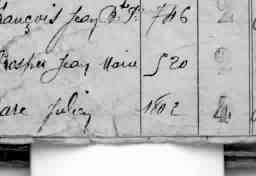 François Jean Bte P. 746 2
Prosper Jean Marie 520 2
Marc Julien 1802 4